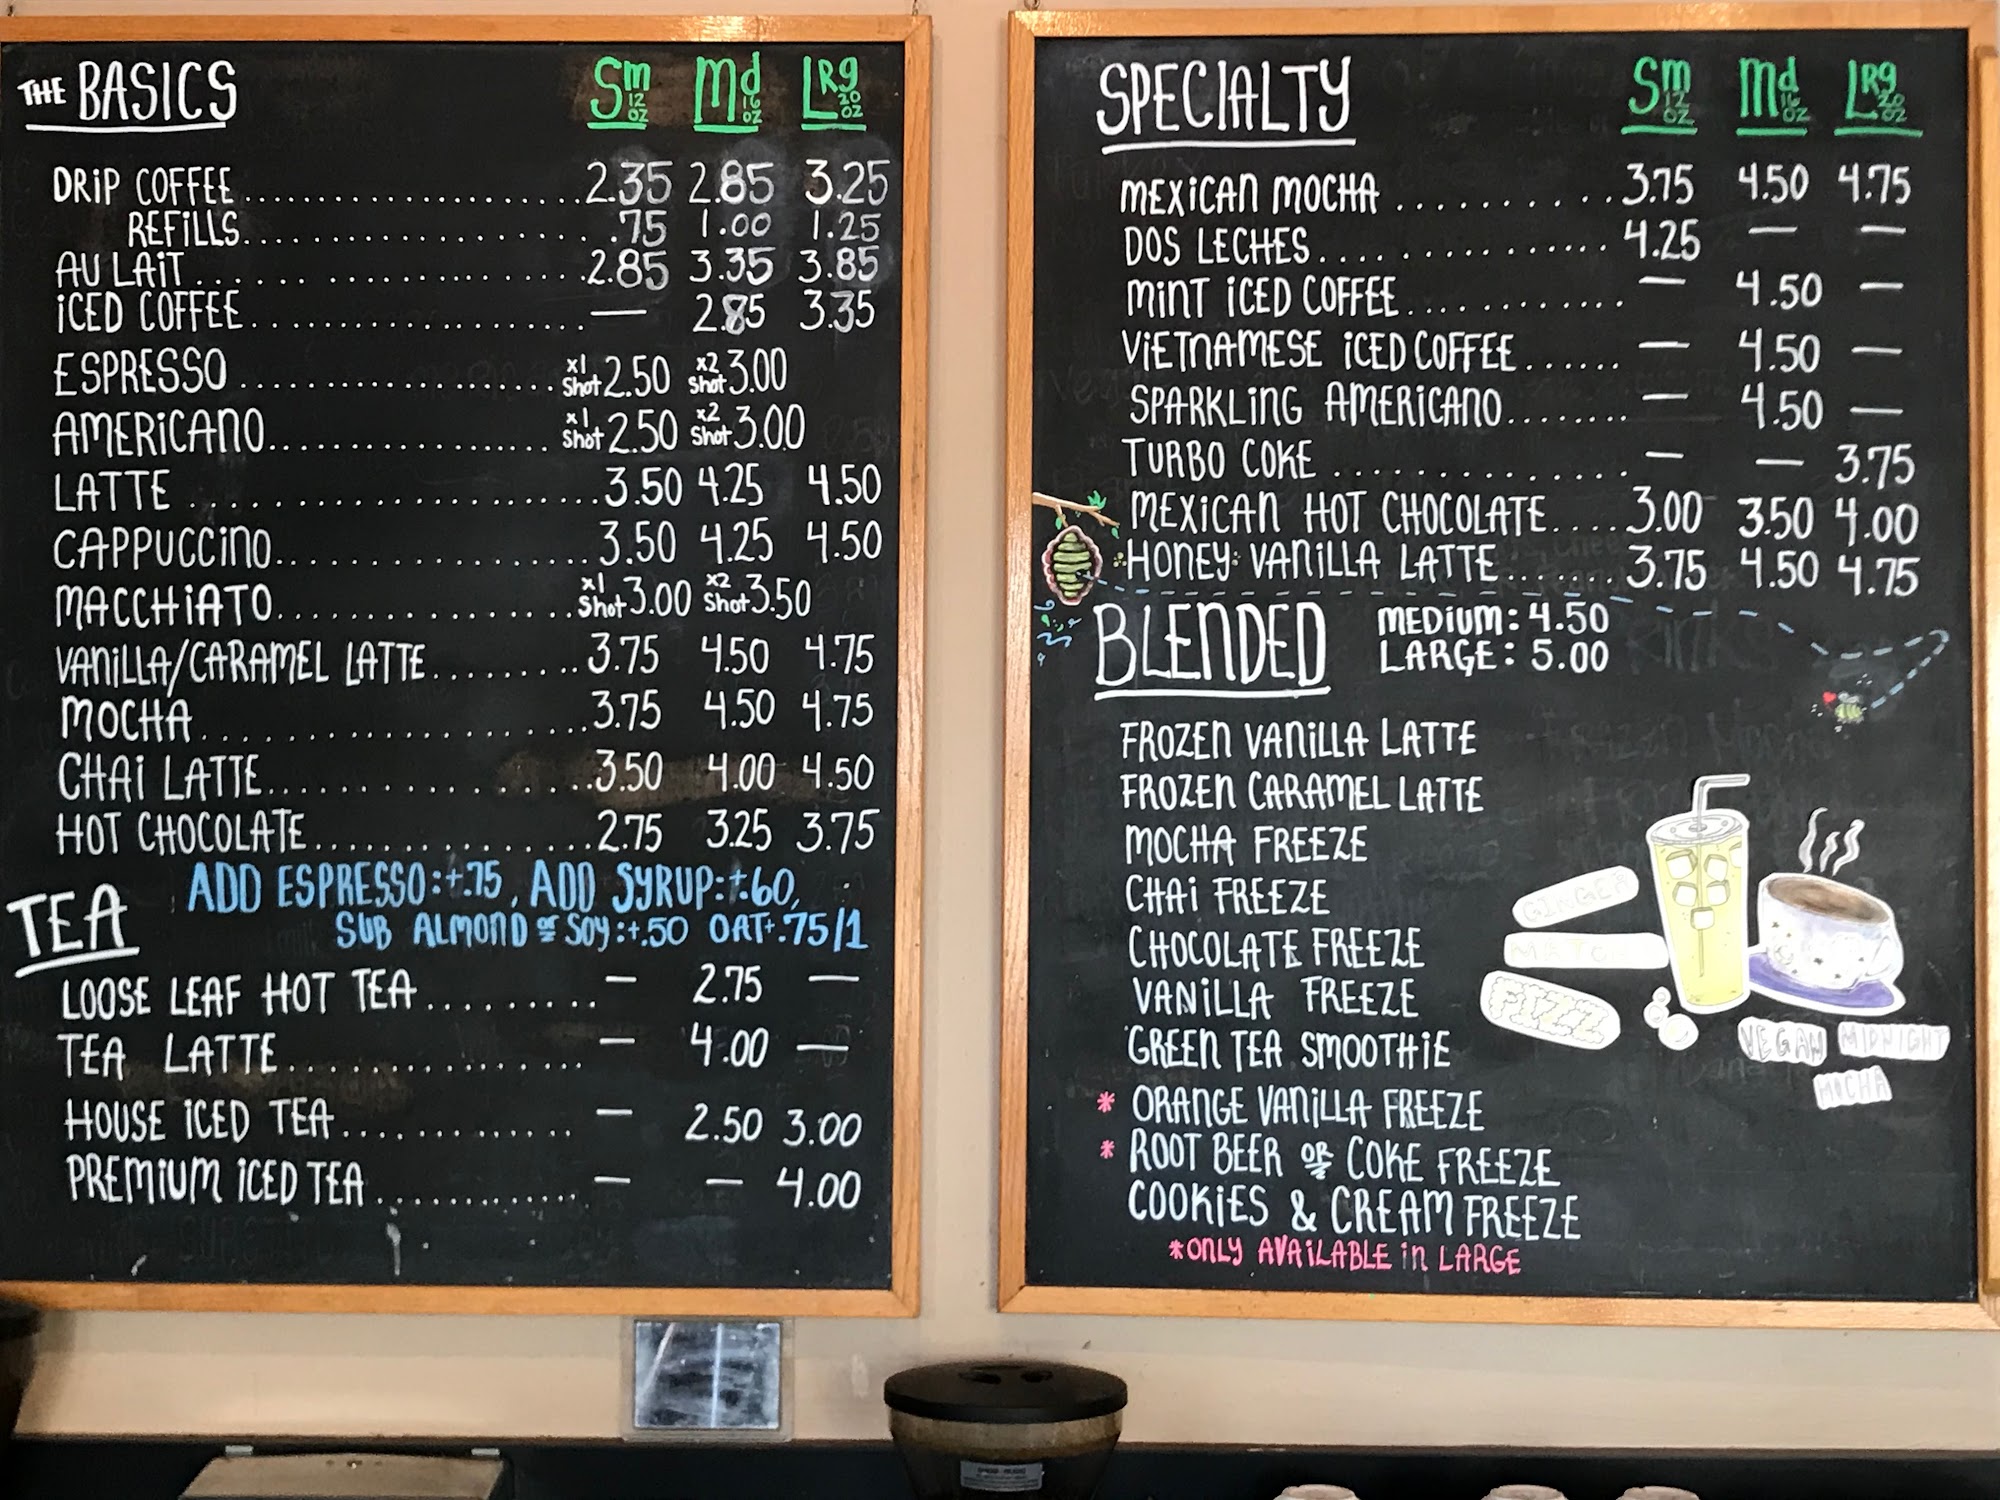 THE BASICS Sm 12 oz Md 16 oz LRg 20 oz
DRiP COFFEE 2.35 2.85 3.25
REFiLLS .75 1.00 1.25
AU LAiT 2.85 3.35 3.85
iCED COFFEE — 2.85 3.35
ESPRESSO x1 Shot 2.50 x2 Shot 3.00
AMERiCANO x1 Shot 2.50 x2 Shot 3.00
LATTE 3.50 4.25 4.50
CAPPUCCiNO 3.50 4.25 4.50
MACCHiATO x1 Shot 3.00 x2 Shot 3.50
VANiLLA/CARAMEL LATTE 3.75 4.50 4.75
MOCHA 3.75 4.50 4.75
CHAi LATTE 3.50 4.00 4.50
HOT CHOCOLATE 2.75 3.25 3.75
ADD ESPRESSO:+.75, ADD SYRUP:+.60,
SUB ALMOND OR SOY:+.50 OAT+.75/1
TEA
LOOSE LEAF HOT TEA — 2.75 —
TEA LATTE — 4.00 —
HOUSE iCED TEA — 2.50 3.00
PREMiUM iCED TEA — — 4.00
SPECIALTY Sm 12 oz Md 16 oz LRg 20 oz
MEXiCAN MOCHA 3.75 4.50 4.75
DOS LECHES 4.25 — —
MiNT iCED COFFEE — 4.50 —
ViETNAMESE iCED COFFEE — 4.50 —
SPARKLiNG AMERiCANO — 4.50 —
TURBO COKE — — 3.75
MEXiCAN HOT CHOCOLATE 3.00 3.50 4.00
HONEY VANiLLA LATTE 3.75 4.50 4.75
BLENDED MEDiUM: 4.50
LARGE: 5.00
FROZEN VANiLLA LATTE
FROZEN CARAMEL LATTE
MOCHA FREEZE
CHAi FREEZE
CHOCOLATE FREEZE
VANiLLA FREEZE
GREEN TEA SMOOTHiE
* ORANGE VANiLLA FREEZE
* ROOT BEER OR COKE FREEZE
COOKiES & CREAM FREEZE
*ONLY AVAiLABLE iN LARGE
GINGER
FIZZ
VEGAN MIDNIGHT
MOCHA